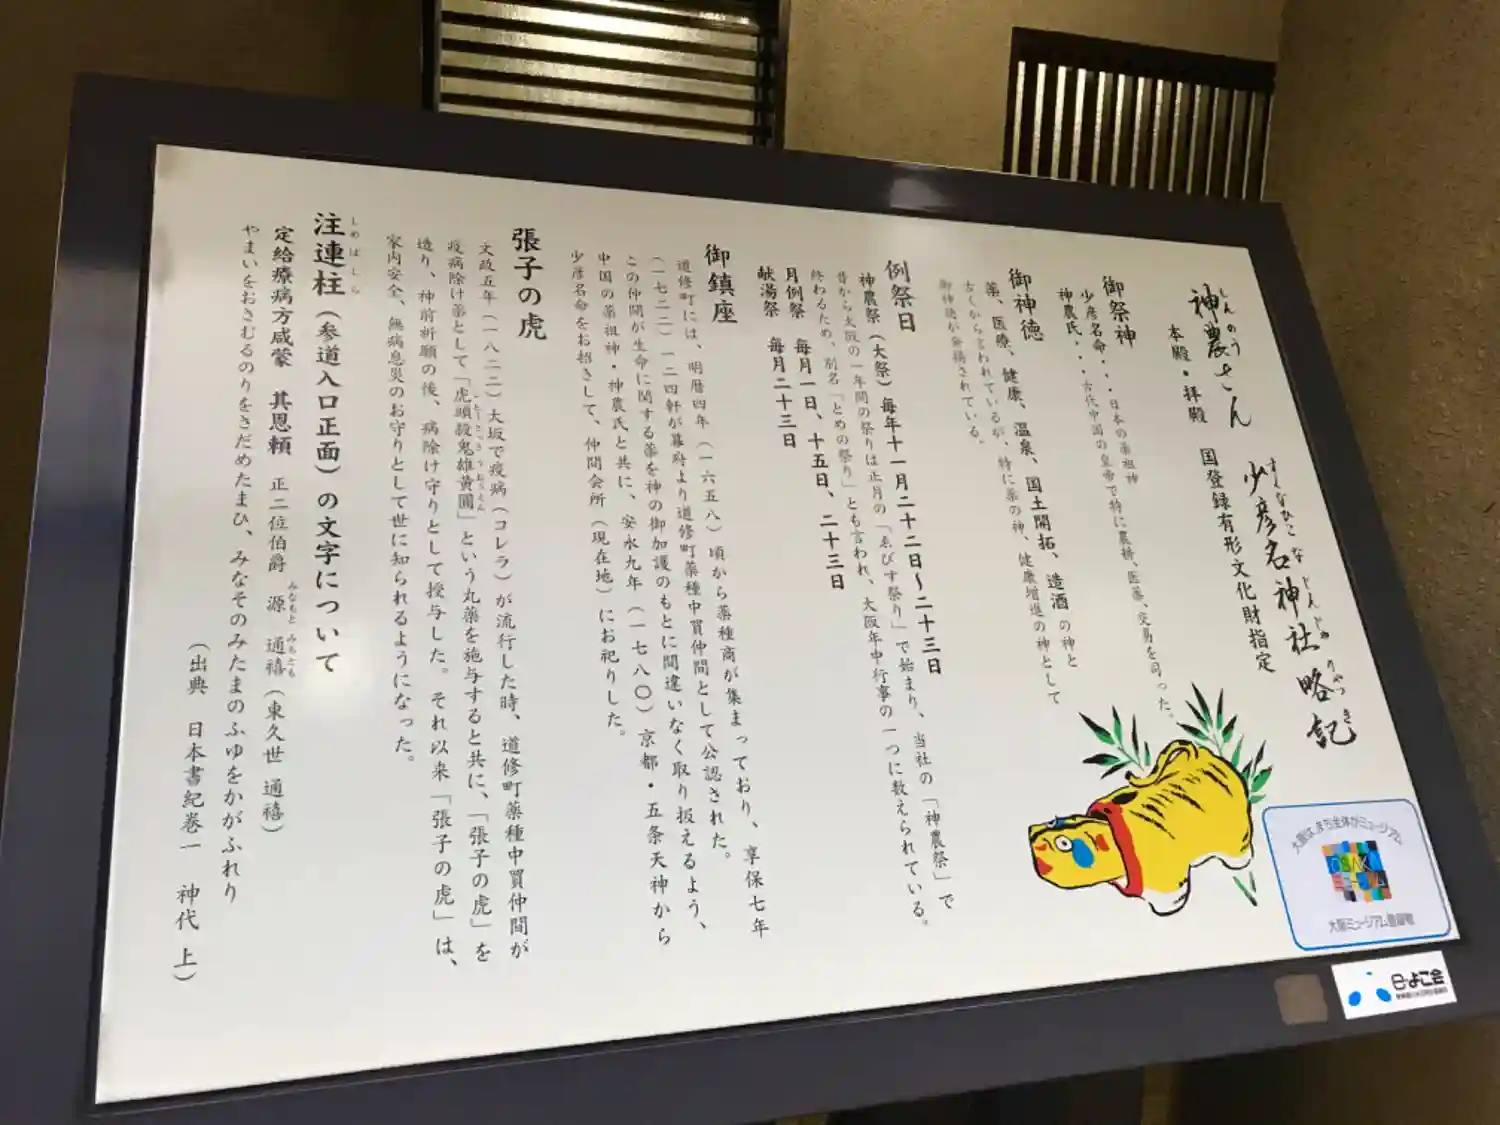 神農さん 少彦名神社略記
しんのう すくなひこな じんじゃ りゃっき
本殿・拝殿 国登録有形文化財指定
御祭神
少彦名命・・・日本の薬祖神
神農氏・・・古代中国の皇帝で特に農耕、医薬、交易を司った。
御神徳
薬、医療、健康、温泉、国土開拓、造酒の神と
古くから言われているが、特に薬の神、健康増進の神として
御神徳が発揚されている。
例祭日
神農祭（大祭）毎年十一月二十二日～二十三日
昔から大阪の一年間の祭りは正月の「ゑびす祭り」で始まり、当社の「神農祭」で
終わるため、別名「とめの祭り」とも言われ、大阪年中行事の一つに数えられている。
月例祭 毎月一日、十五日、二十三日
献湯祭 毎月二十三日
御鎮座
道修町には、明暦四年（一六五八）頃から薬種商が集まっており、享保七年
（一七二二）一二四軒が幕府より道修町薬種中買仲間として公認された。
この仲間が生命に関する薬を神の御加護のもとに間違いなく取り扱えるよう、
中国の薬祖神・神農氏と共に、安永九年（一七八〇）京都・五条天神から
少彦名命をお招きして、仲間会所（現在地）にお祀りした。
張子の虎
文政五年（一八二二）大坂で疫病（コレラ）が流行した時、道修町薬種中買仲間が
疫病除け薬として「虎頭殺鬼雄黄圓」という丸薬を施与すると共に、「張子の虎」を
ことうさっきうおうえん
造り、神前祈願の後、病除け守りとして授与した。それ以来「張子の虎」は、
家内安全、無病息災のお守りとして世に知られるようになった。
しめばしら
注連柱（参道入口正面）の文字について
定給療病方咸蒙 其恩頼 正二位伯爵 源 通禧（東久世 通禧）
みなもと みちとみ
やまいをおさむるのりをさだめたまひ、みなそのみたまのふゆをかがふれり
（出典 日本書紀巻一 神代 上）
大阪は、まち全体がミュージアム
OSAKA
ミュージアム
大阪ミュージアム登録物
e-よこ会